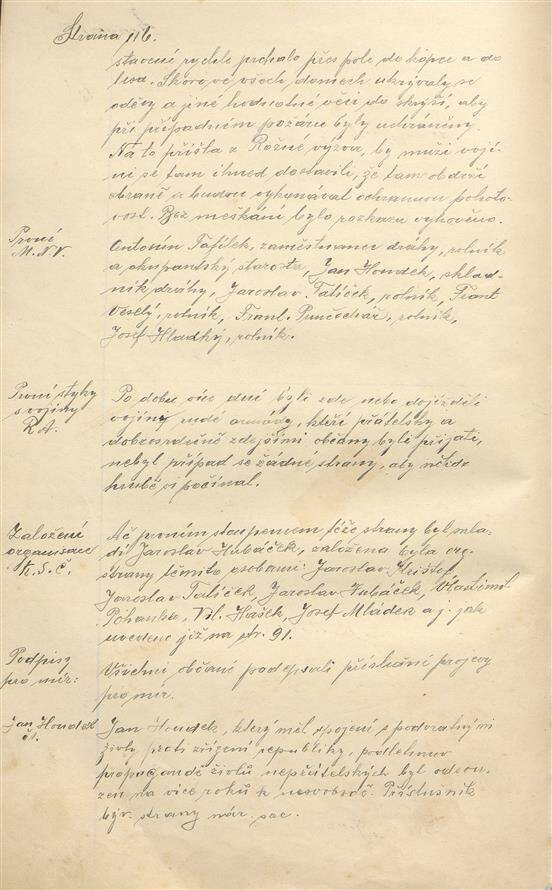 Strana 116.
stavení rychle prchalo přes pole do kopce a do
lesa. Skoro ve všech domech ukrývaly se
oděvy a jiné hodnotné věci do skrýší, aby
při případném požáru byly uchráněny.
Na to přišla z Rožné výzva, by muži vojí-
ni se tam ihned dostavili, že tam obdrží
zbraně a budou vykonávat ochrannou pohoto-
vost. Bez meškání bylo rozkazu vyhověno.
První
M.N.V.
Antonín Tatíček, zaměstnanec dráhy, rolník
a okupantský starosta, Jan Houdek, sklad-
ník dráhy, Jaroslav Tatíček, rolník, Frant
Veselý, rolník, Frant. Punčochář, rolník,
Josef Hladký, rolník.
První styky
s vojíny
R.A.
Po dobu více dní byli zde nebo dojížděli
vojíni rudé armády, kteří přátelsky a
dobrosrdečně zdejšími občany byli přijati,
nebyl případ se žádné strany, aby někdo
hrubě si počínal.
Založení
organisace
K.S.Č.
Ač prvním stoupencem téže strany byl mla-
dí Jaroslav Hubáček, založena byla org.
strany těmito osobami: Jaroslav
Jaroslav Tatíček, Jaroslav Hubáček, Vlastimil
Pohanka, Vil. Hašek, Josef Mládek a j. jak
uvedeno již na str. 91.
Podpisy
pro mír:
Všichni občané podepsali příslušné projevy
pro mír.
Jan Houdek
čl.
Jan Houdek, který měl spojení s podvratnými
živly proti zřízení republiky, podlehnuv
propagandě živlů nepřátelských byl odsou-
zen na více roků k nesvobodě. Příslušník
býv. strany nár. soc.